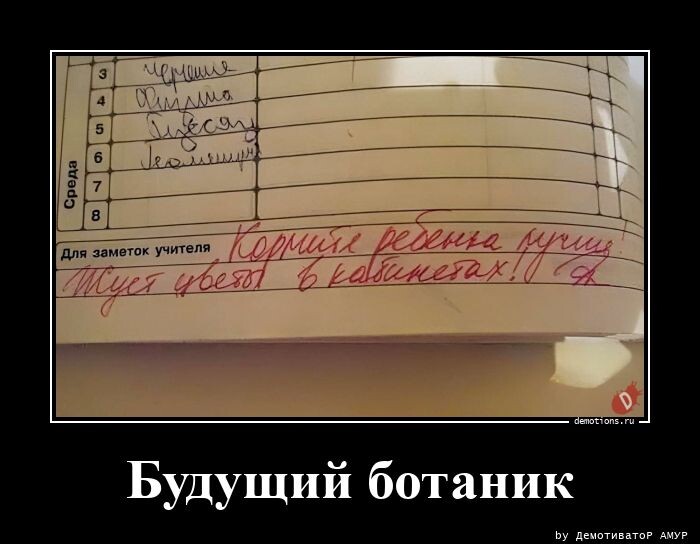 3 Черчение
4 Физика
5
6
7
Среда
8
Для заметок учителя Кормите ребенка лучше!
Жует цветы в кабинетах!
D
demotions.ru
Будущий ботаник
by ДемотиватоР АМУР